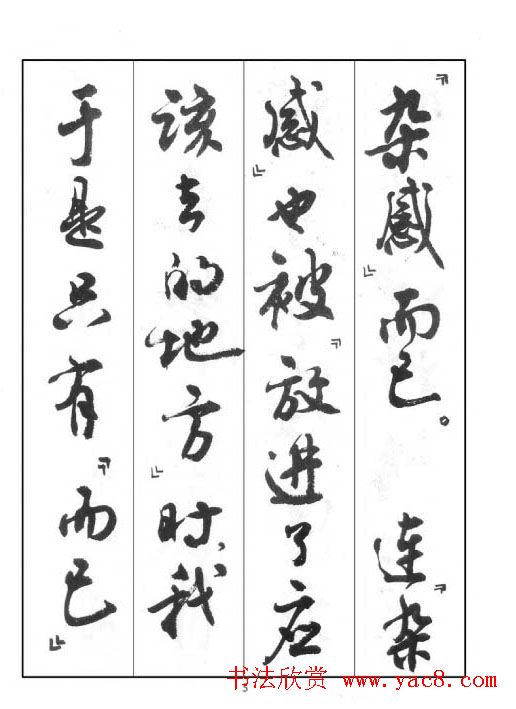 『杂感』而已。连『杂
感』也被『放进了应
该去的地方』时,我
于是只有『而已』
书法欣赏 www.yac8.com
5